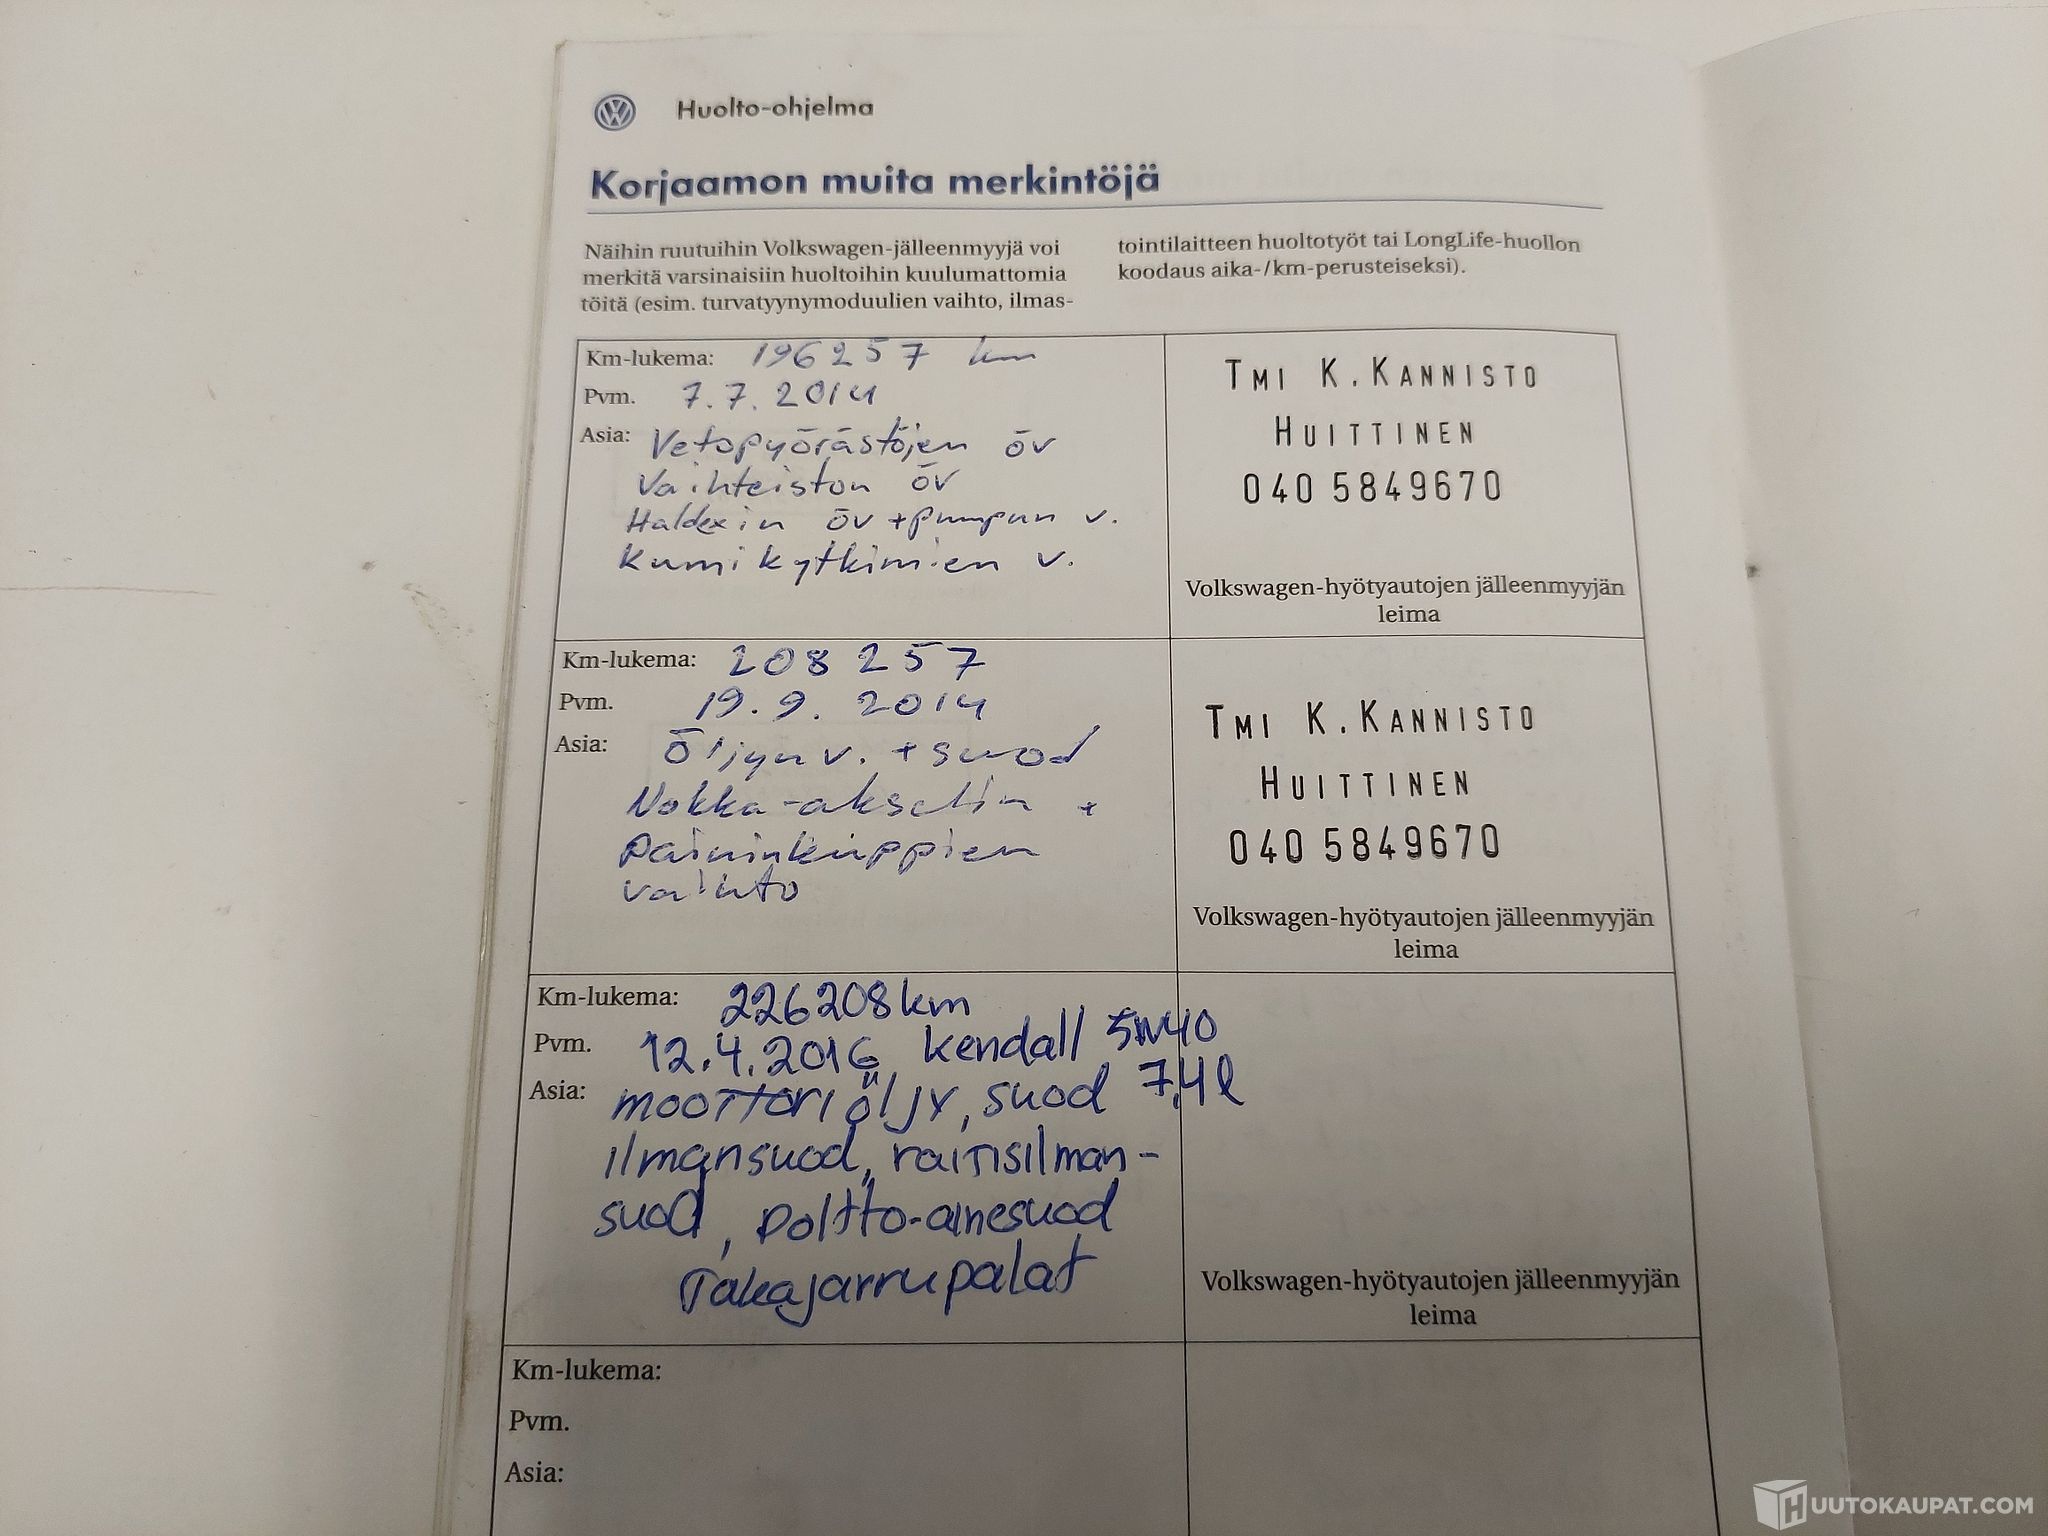 Huolto-ohjelma
Korjaamon muita merkintöjä
Näihin ruutuihin Volkswagen-jälleenmyyjä voi
merkitä varsinaisiin huoltoihin kuulumattomia
töitä (esim. turvatyynymoduulien vaihto, ilmas-
tointilaitteen huoltotyöt tai LongLife-huollon
koodaus aika-/km-perusteiseksi).
Km-lukema: 196257 km
Pvm. 7.7.2014
Asia: Vetopyörästöjen öv
Vaihteiston öv
Haldexin öv + pumpun v.
Kumikytkimien v.
TMI K. KANNISTO
HUITTINEN
040 5849670
Volkswagen-hyötyautojen jälleenmyyjän
leima
Km-lukema: 208 257
Pvm. 19.9.2014
Asia: Öljyn v. + suod
Nokka-akselin +
Paininkuppien
vaihto
TMI K. KANNISTO
HUITTINEN
040 5849670
Volkswagen-hyötyautojen jälleenmyyjän
leima
Km-lukema: 226208km
Pvm. 12.4.2016 kendall 5W40
Asia: moottoriöljy, suod 7,4l
ilmansuod, raitisilman-
suod, poltto-ainesuod
Takajarrupalat
Volkswagen-hyötyautojen jälleenmyyjän
leima
Km-lukema:
Pvm.
Asia:
HUUTOKAUPAT.COM